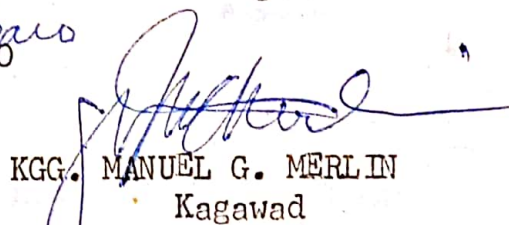 KGG. MANUEL G. MERLIN
Kagawad